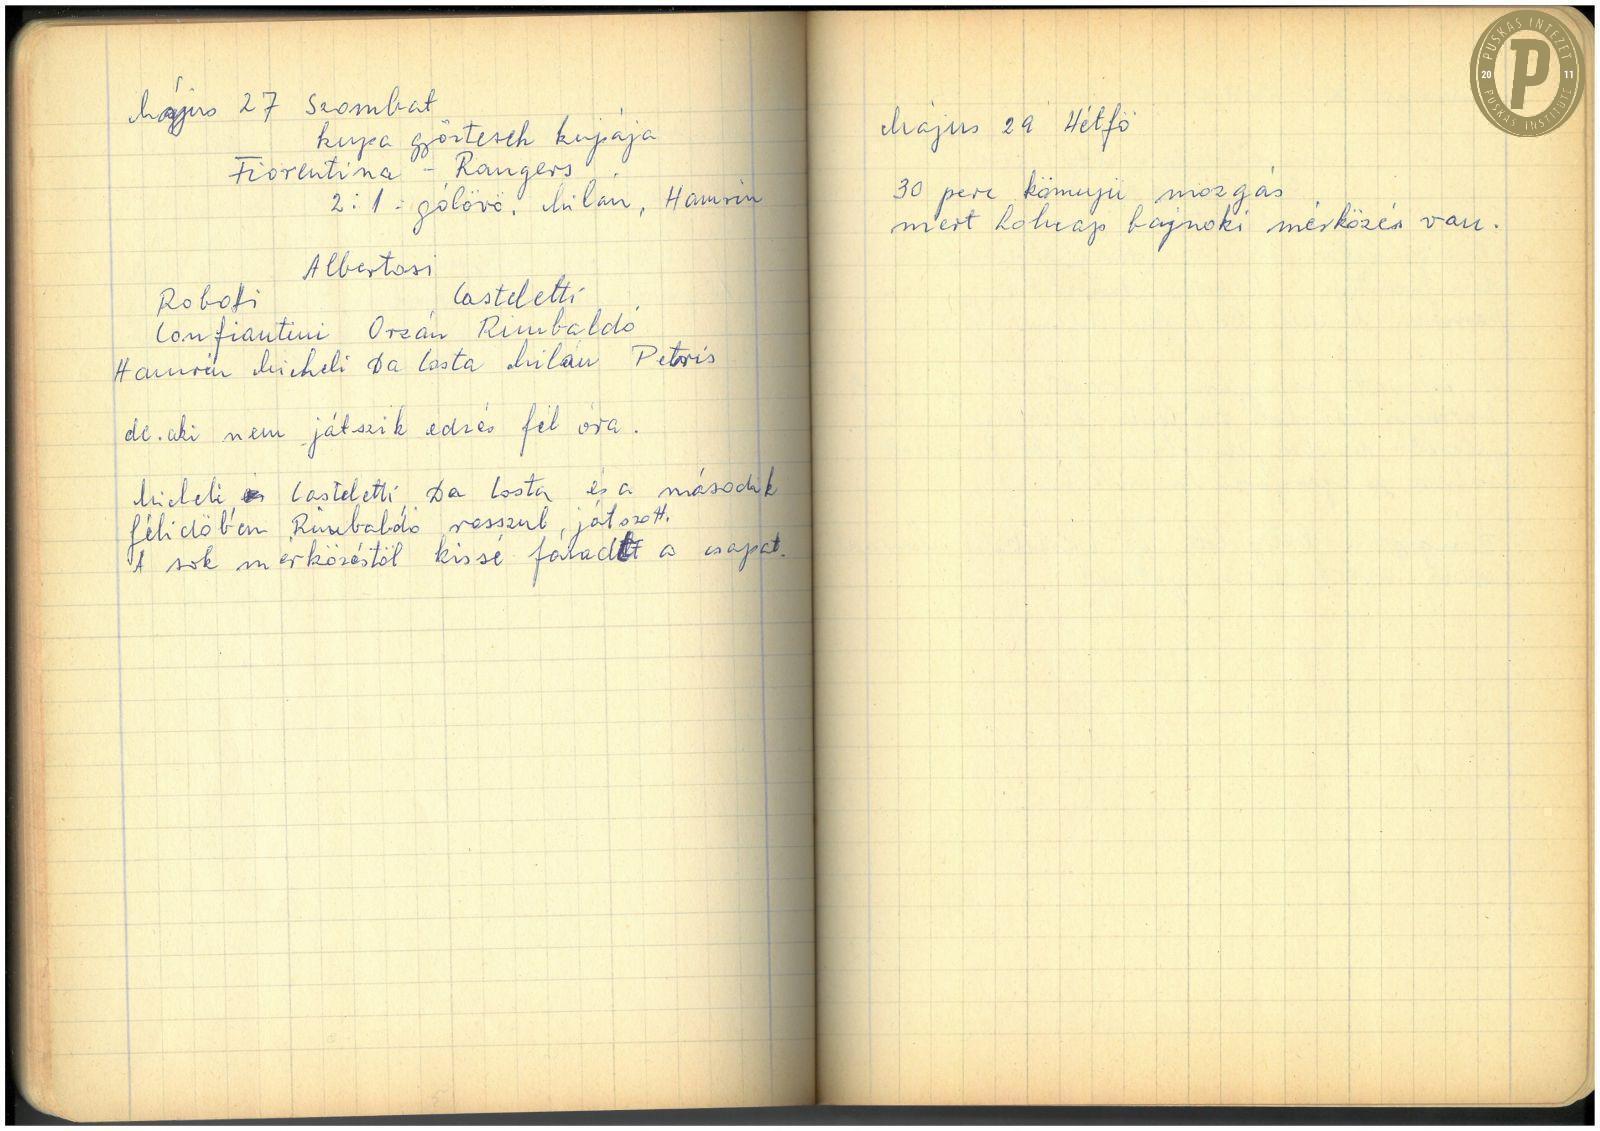 Május 27 Szombat
kupa győztesek kupája
Fiorentina - Rangers
2:1 : gólövö. Milán, Hamrin
Albertosi
Roboti Casteletti
Confiantini Orzán Rimbaldó
Hamrin Micheli Da Costa Milán Petris
de. aki nem játszik edzés fél óra.
Micheli és Casteletti Da Costa és a második
félidöben Rimbaldó rosszul játszott.
A sok mérközéstöl kissé fáradt a csapat.
Május 29 Hétfö
30 perc könnyü mozgás
mert holnap bajnoki mérközés van.
PUSKÁS INTÉZET
20 P 11
PUSKÁS INSTITUTE